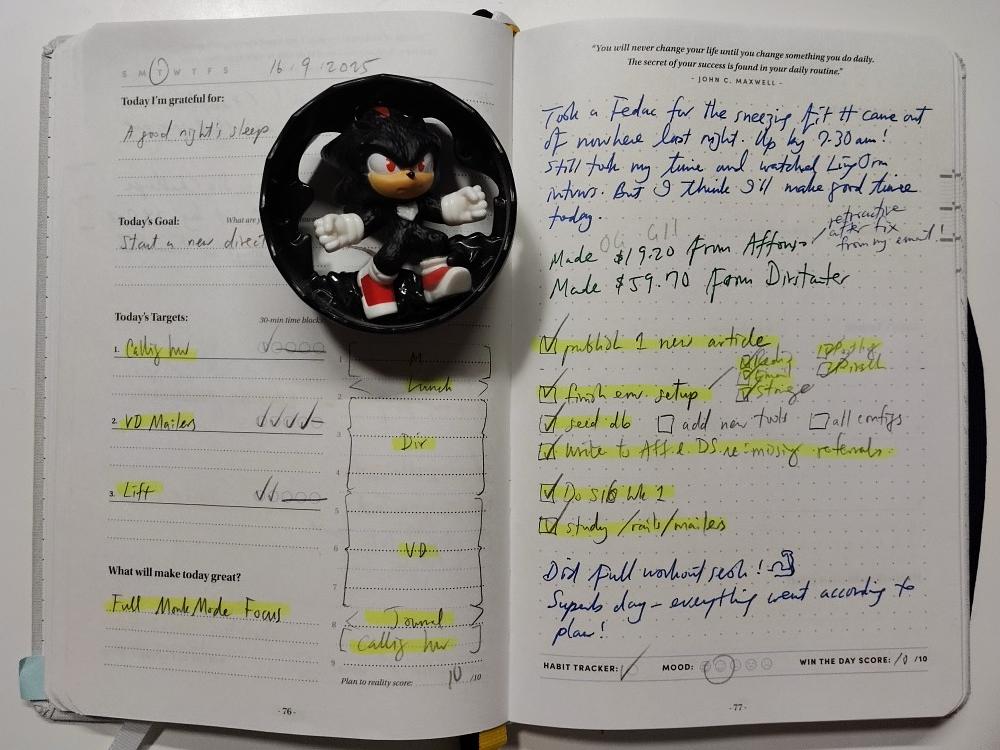 S M T W T F S 16.9.2025
Today I'm grateful for:
A good night's sleep
Today's Goal:
What are
Start a new direct
Today's Targets:
30-min time block
1. Callig hw
2. VD Mailers
3. Lift
What will make today great?
Full Monk Mode Focus
1
M
Lunch
2
3
Dir
4
5
6
VD
7
8
Journal
Callig hw
9
Plan to reality score: 10 /10
- 76 -
"You will never change your life until you change something you do daily.
The secret of your success is found in your daily routine."
- JOHN C. MAXWELL -
Took a Fedac for the sneezing fit tt came out
of nowhere last night. Up by 7.30am!
Still took my time and watched LingOrm
intvws. But I think I'll make good time
today.
Made $19.20 from Affonso
retroactive
after fix
from my email!
Made $59.70 from Dirstarter
publish 1 new article
finish env. setup
Email
Storage
seed db add new tools all configs
Write to Aff. & DS re: missing referrals
Do S16 Wk 1
study /rails/mailers
Did full workout sesh!
Superb day - everything went according to
plan!
HABIT TRACKER: MOOD: WIN THE DAY SCORE: 10 /10
- 77 -